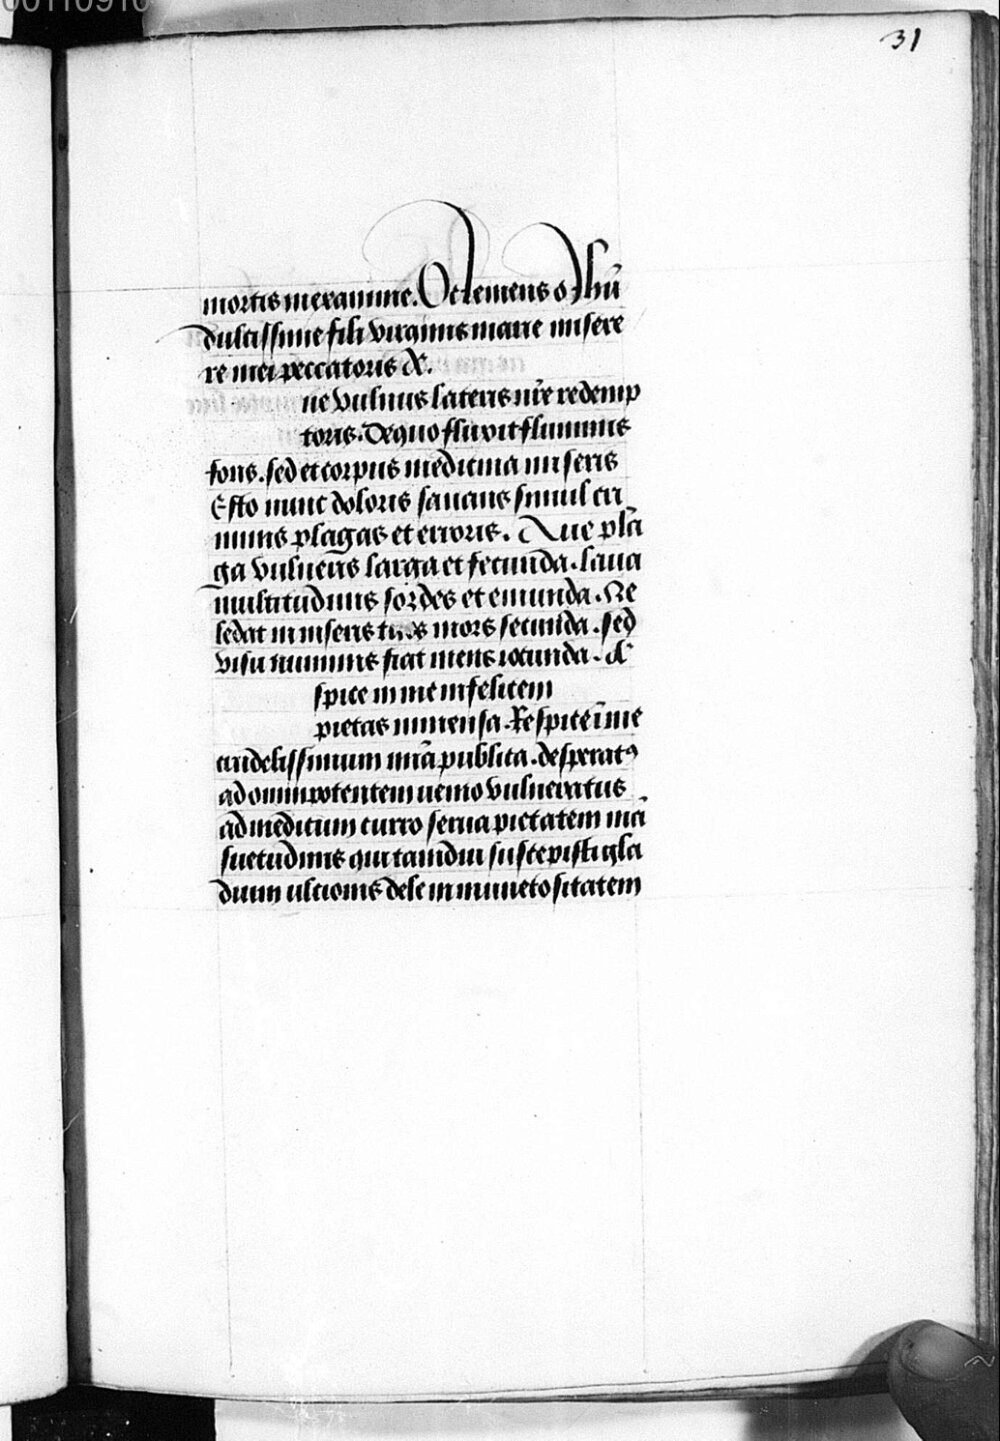 00110910
31
mortis mexanime. O clemens o Jhũ
dulcissime fili virginis marie misere
re mei peccatoris &c.
ne vulnus lateris nr̃e redemp
toris. De quo fluvit fluminis
fons. sed et corpus medicina miseris
Esto nunc doloris sanans simul cri
minis plagas et erroris. Aue pla
ga vulneris larga et fecunda. laua
multitudinis sordes et emunda. Ne
ledat in miseris mors secunda. sed
visu numinis fiat mens iocunda. &
spice in me infelicem
pietas immensa. Respice ĩ me
crudelissimum mĩa publica. desperatꝰ
ad omnipotentem uenio vulneratus
ad medicum curro serua pietatem mã
suetudinis qui tamdiu suscepisti gla
dium ulcionis dele in